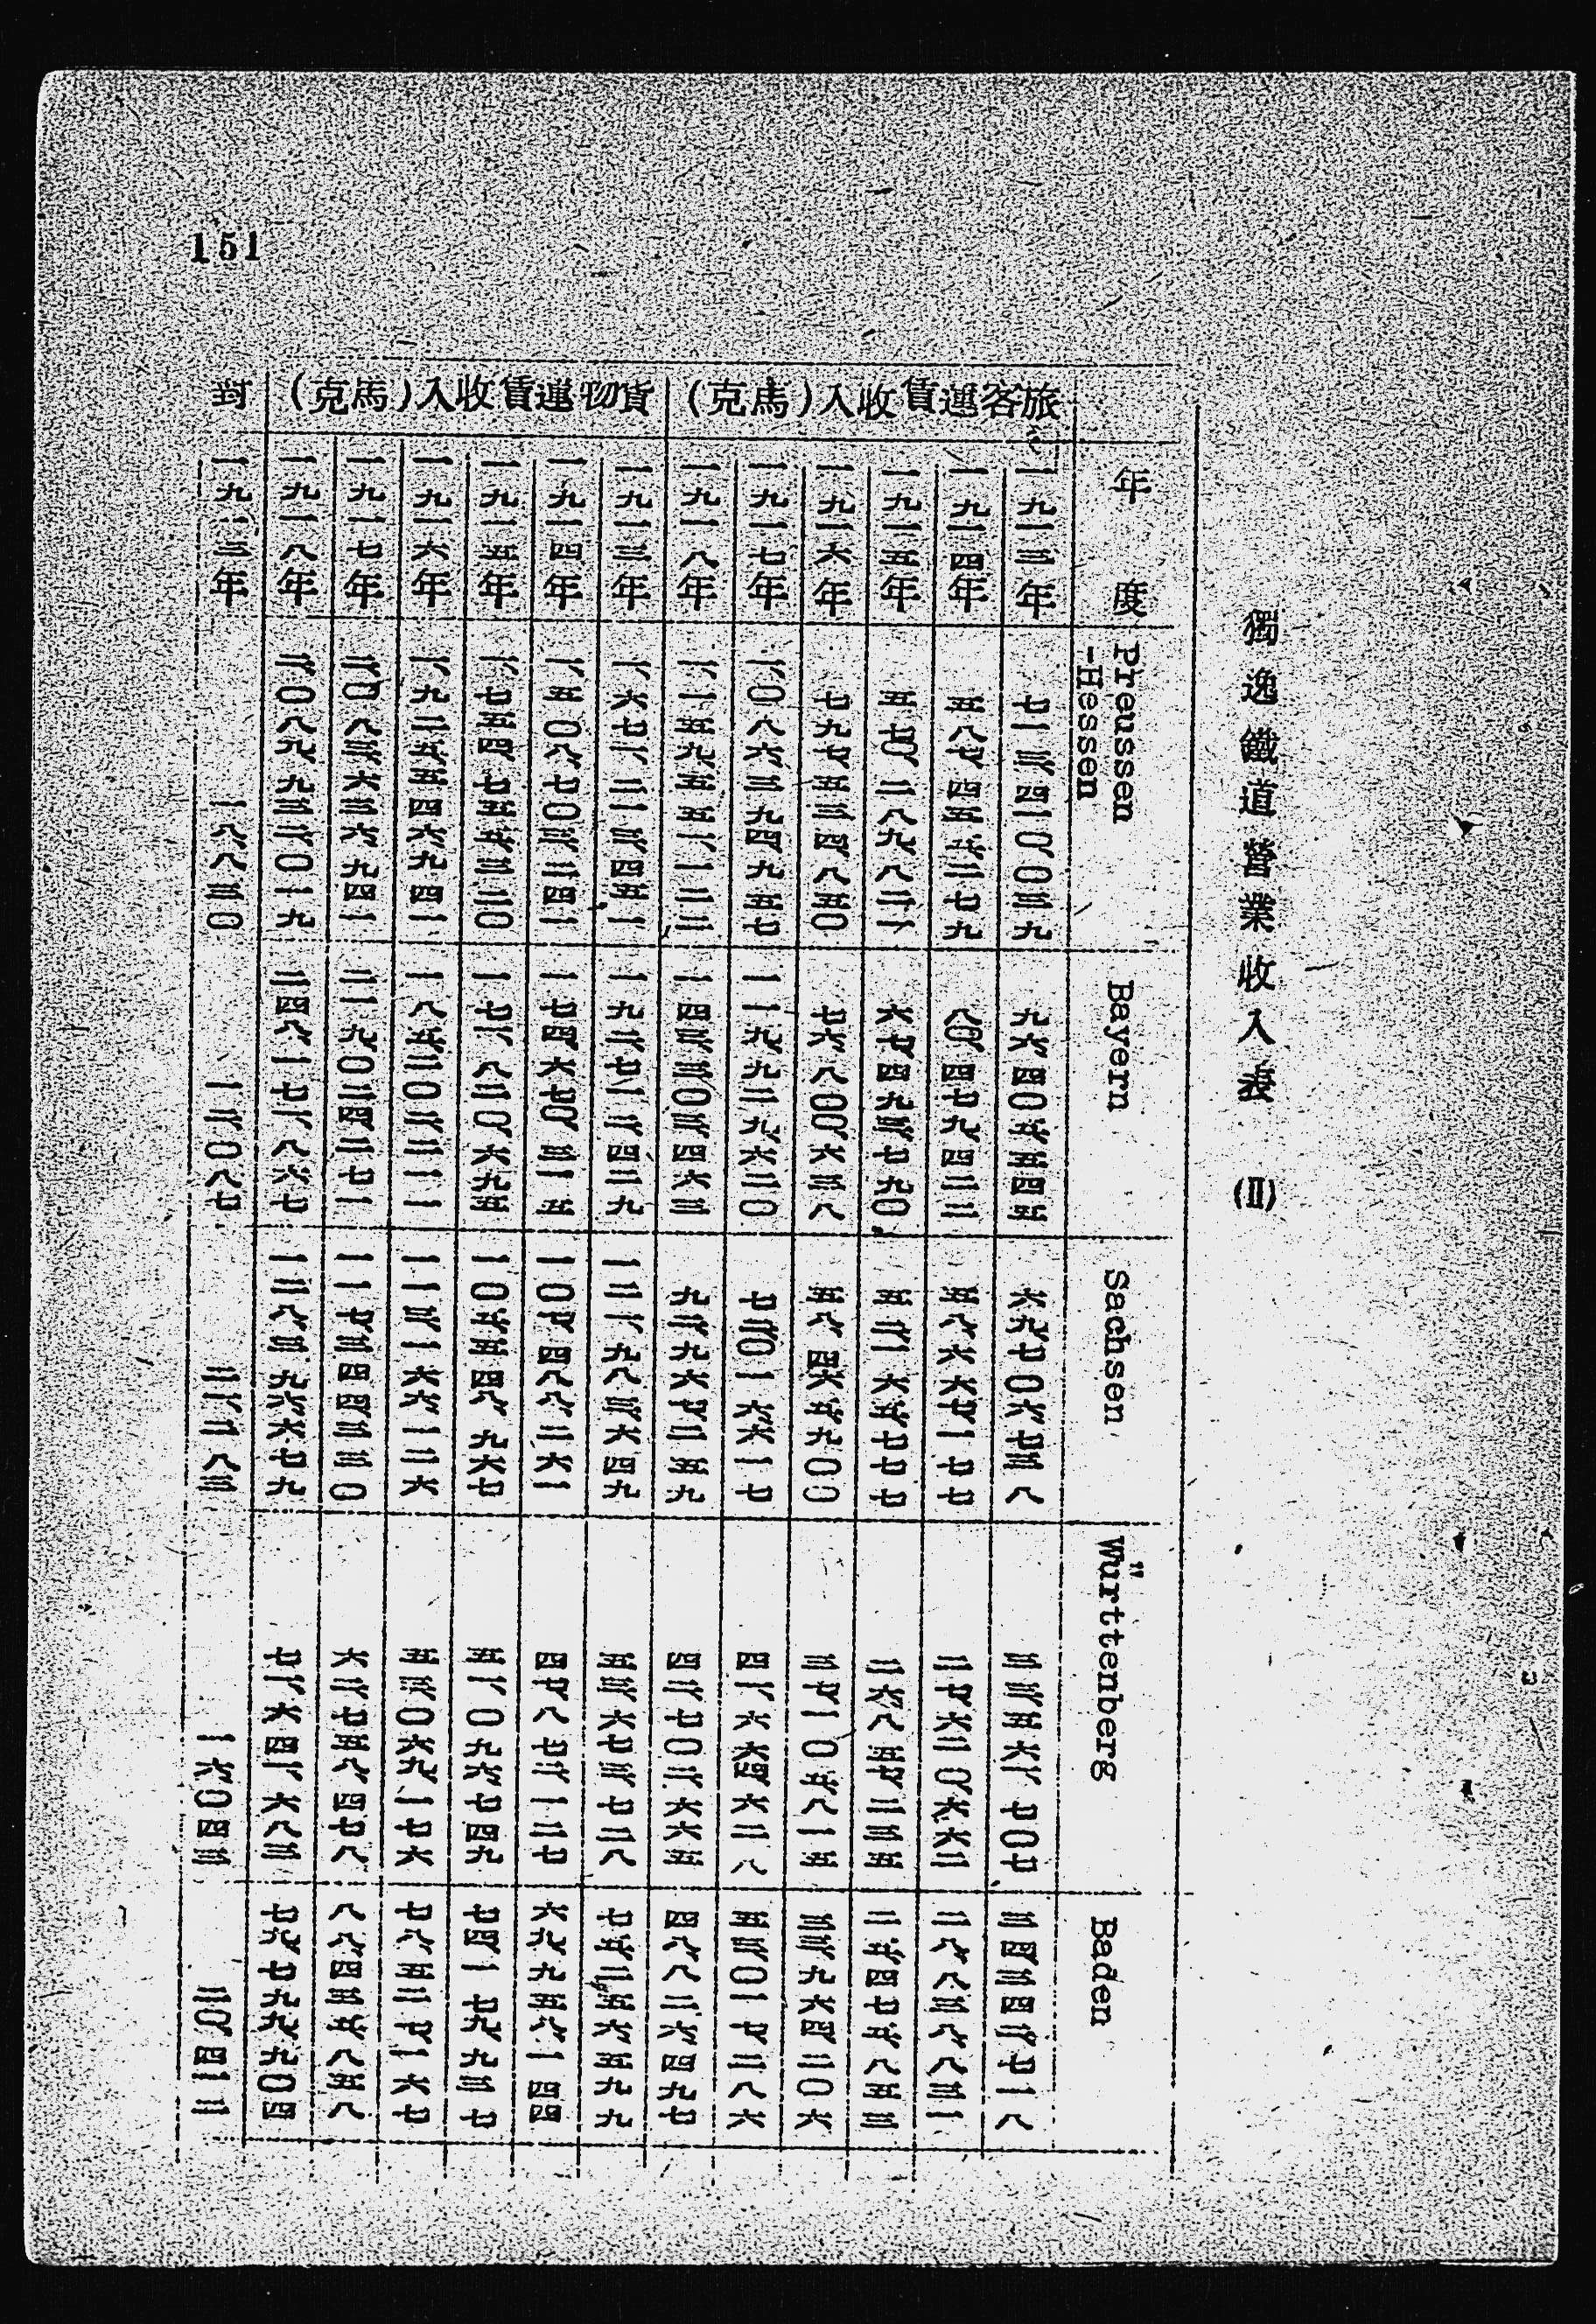 151
獨逸鐵道營業收入表 (II)
年度 Preussen-Hessen Bayern Sachsen Württenberg Baden
旅客運賃收入(馬克)
一九一三年 九六、四〇五、五四五 六六、七〇六、七三八 三三、五六一、七〇七 三四、三四三、七一八
一九一四年 八〇、四七九、四三三 五八、六六七、一七七 二七、六二〇、六六二 二八、八三八、八三一
一九一五年 六七、四九五、七九〇 五三、一六五、七七七 二六、八五七、二三五 二五、四七五、八五三
一九一六年 七九七、五三四、八五〇 七六、八〇〇、六三八 五八、四六五、九〇〇 三七、一〇五、八一五 三三、九六四、二〇六
一九一七年 一、〇八六、三九四、九五七 一一九、九二九、六二〇 七三〇、一六六、一七 四一、六六四、六二八 五三、〇一七、二八六
一九一八年 一、一五九、五五一、一三三 一四三、三〇三、四六三 九三、九六七、二五九 四三、七〇三、六六五 四八、八二六、四九七
貨物運賃收入(馬克)
一九一三年 一、六七一、二一三、四五一 一九三、七二三、四三九 一三一、九八三、六四九 五三、六七三、七三八 七五、二五六、五九九
一九一四年 一、五〇八、七〇三、三四一 一七四、六七〇、三一五 一〇七、四八八、二六一 四七、八七三、一三七 六九、九五八、一四四
一九一五年 一、七五四、七五五、三三〇 一七一、八三〇、六九五 一〇五、五四八、九六七 五一、〇九六、七四九 七四、一七九、九三七
一九一六年 一、九二五、五四六、九四一 一八五、二〇三、三一一 一一三、一六六、一二六 五三、〇六九、一七六 七八、五三七、一六七
一九一七年 二、〇八三、六三六、九四一 二一九、〇二四、三七一 一一七、三四四、三三〇 六三、七五八、四七八 八八、四三五、八五八
一九一八年 二、〇八九、九三三、〇一九 二四八、一七一、八六七 一三八、三九六、六七九 七一、六四一、六八三 七九、七九九、九〇四
封
一九一三年 一八、八三〇 一三、〇八七 二一、二八三 一六、〇四三 二〇、四三三